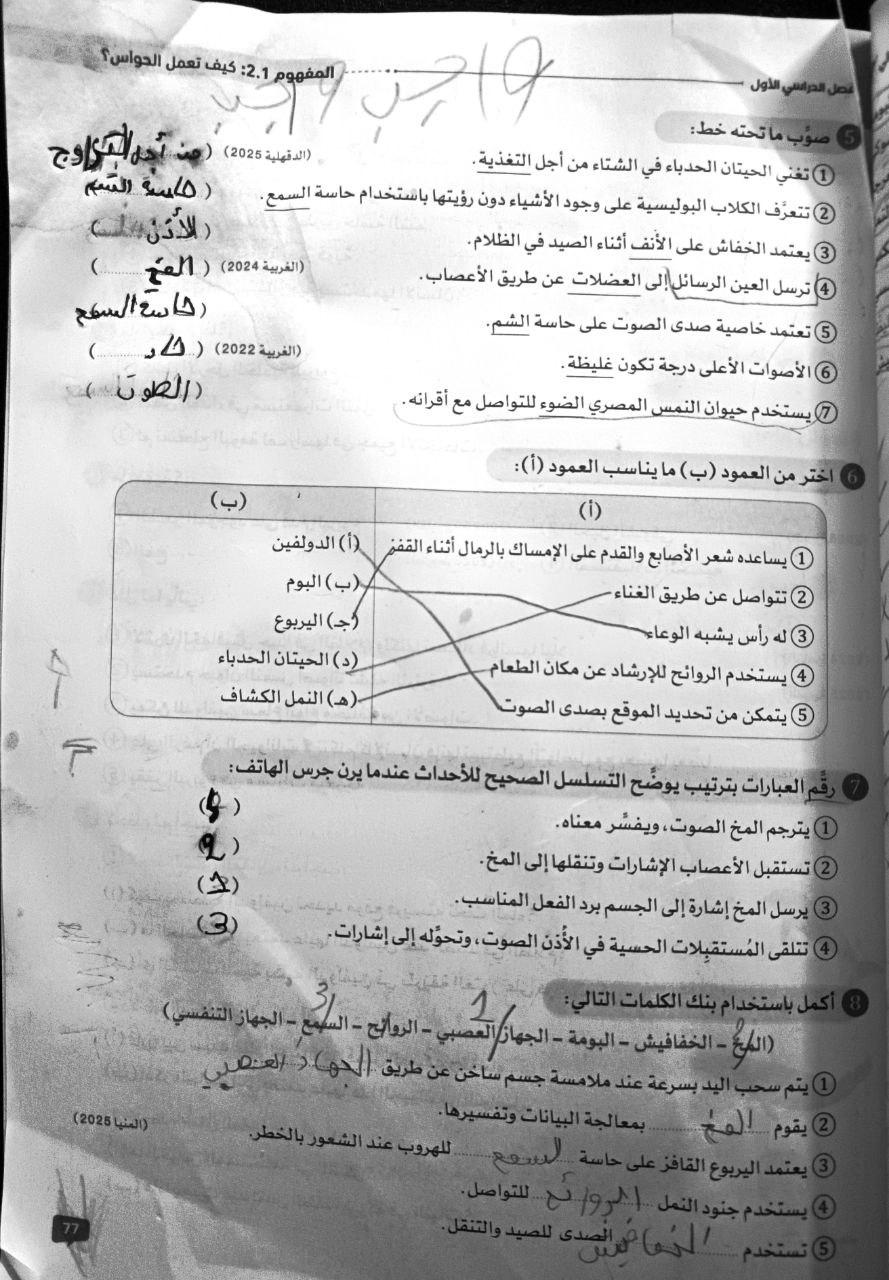 الفصل الدراسي الأول
المفهوم 2.1: كيف تعمل الحواس؟
واجب واجب
5 صوِّب ما تحته خط:
1 تغني الحيتان الحدباء في الشتاء من أجل التغذية. (الدقهلية 2025) (من أجل التزاوج
2 تتعرَّف الكلاب البوليسية على وجود الأشياء دون رؤيتها باستخدام حاسة السمع. (حاسة الشم
3 يعتمد الخفاش على الأنف أثناء الصيد في الظلام. (الأذن)
4 ترسل العين الرسائل إلى العضلات عن طريق الأعصاب. (الغربية 2024) (المخ)
5 تعتمد خاصية صدى الصوت على حاسة الشم. (حاسة السمع
6 الأصوات الأعلى درجة تكون غليظة. (الغربية 2022) (حاد)
7 يستخدم حيوان النمس المصري الضوء للتواصل مع أقرانه. (الصوت)
6 اختر من العمود (ب) ما يناسب العمود (أ):
(أ) (ب)
1 يساعده شعر الأصابع والقدم على الإمساك بالرمال أثناء القفز (أ) الدولفين
2 تتواصل عن طريق الغناء (ب) البوم
3 له رأس يشبه الوعاء (جـ) اليربوع
4 يستخدم الروائح للإرشاد عن مكان الطعام (د) الحيتان الحدباء
5 يتمكن من تحديد الموقع بصدى الصوت (هـ) النمل الكشاف
7 رقِّم العبارات بترتيب يوضِّح التسلسل الصحيح للأحداث عندما يرن جرس الهاتف:
1 يترجم المخ الصوت، ويفسَّر معناه.
2 تستقبل الأعصاب الإشارات وتنقلها إلى المخ. (2)
3 يرسل المخ إشارة إلى الجسم برد الفعل المناسب. (1)
4 تتلقى المُستقبِلات الحسية في الأُذن الصوت، وتحوِّله إلى إشارات. (3)
8 أكمل باستخدام بنك الكلمات التالي:
(المخ – الخفافيش – البومة – الجهاز العصبي – الروائح – السمع – الجهاز التنفسي)
1 يتم سحب اليد بسرعة عند ملامسة جسم ساخن عن طريق الجهاز العصبي
2 يقوم المخ بمعالجة البيانات وتفسيرها.
3 يعتمد اليربوع القافز على حاسة السمع للهروب عند الشعور بالخطر. (المنيا 2025)
4 يستخدم جنود النمل الروائح للتواصل.
5 تستخدم الخفافيش الصدى للصيد والتنقل.
77